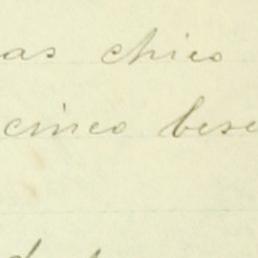 as chico
cinco bese